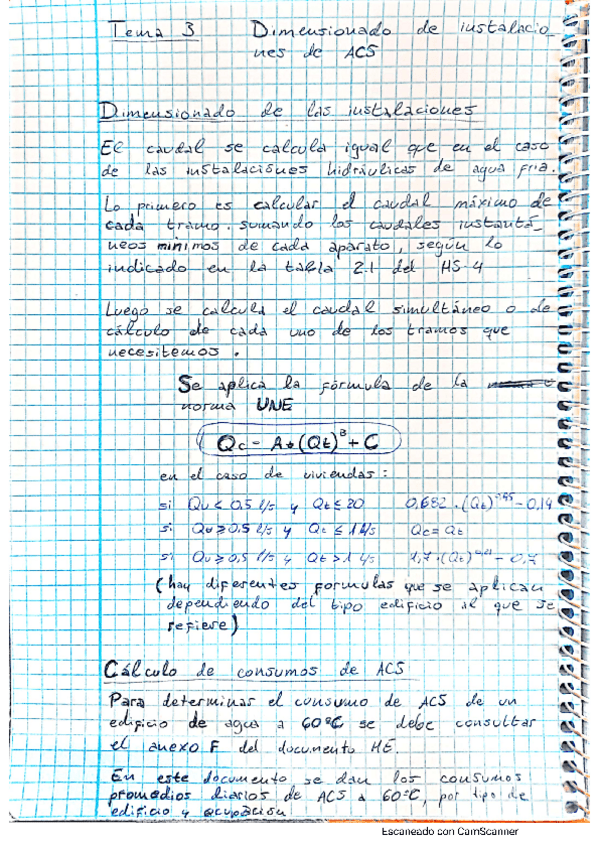 Tema 3 Dimensionado de instalacio_
nes de ACS
Dimensionado de las instalaciones
El caudal se calcula igual que en el caso
de las instalaciones hidráulicas de agua fria.
Lo primero es calcular el caudal máximo de
cada tramo. sumando los caudales instantá_
neos mínimos de cada aparato, según lo
indicado en la tabla 2.1 del HS-4
Luego se calcula el caudal simultáneo o de
cálculo de cada uno de los tramos que
necesitemos.
Se aplica la fórmula de la
norma UNE
Qc = A*(Qt)^B + C
en el caso de viviendas:
si Qu < 0,5 l/s y Qt ≤ 20 0,682 · (Qt)^0,45 - 0,14
si Qu ≥ 0,5 l/s y Qt ≤ 1 l/s Qc = Qt
si Qu ≥ 0,5 l/s y Qt > 1 l/s 1,7 · (Qt)^0,21 - 0,7
(hay diferentes formulas que se aplican
dependiendo del tipo edificio al que se
refiere)
Cálculo de consumos de ACS
Para determinar el consumo de ACS de un
edificio de agua a 60ºC se debe consultar
el anexo F del documento HE.
En este documento se dan los consumos
promedios diarios de ACS a 60ºC, por tipo de
edificio y ocupación
Escaneado con CamScanner